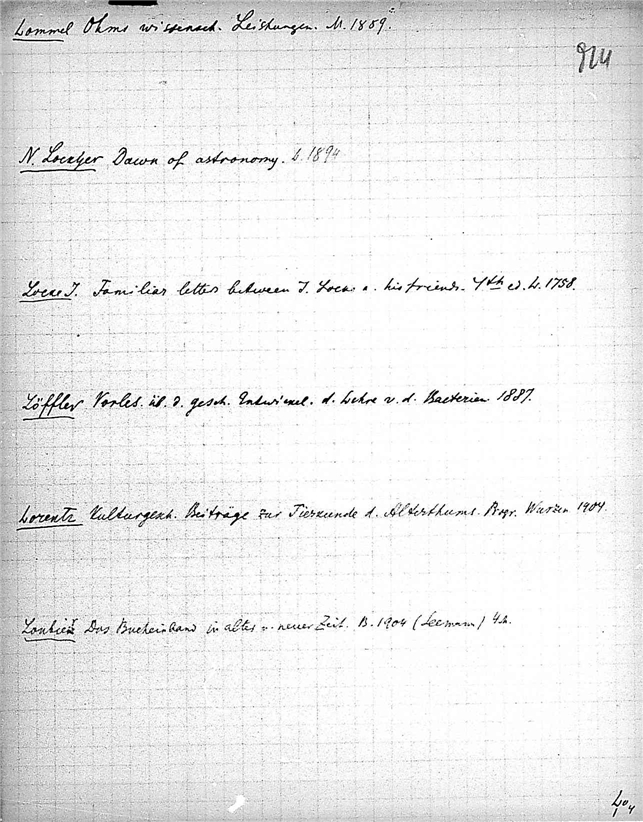 Lommel Ohms wissensch. Leistungen. M. 1889.
924
N. Lockyer Dawn of astronomy. L. 1894
Locke J. Familiar letters between J. Locke a. his friends. 4th ed. L. 1758.
Löffler Vorles. üb. d. gesch. Entwickel. d. Lehre v. d. Bacterien 1887.
Lorentz Kulturgesch. Beiträge zur Tierkunde d. Alterthums. Progr. Wurzen 1904.
Loubier Das Bucheinband in alter u. neuer Zeit. B. 1904 (Seemann) 4 M.